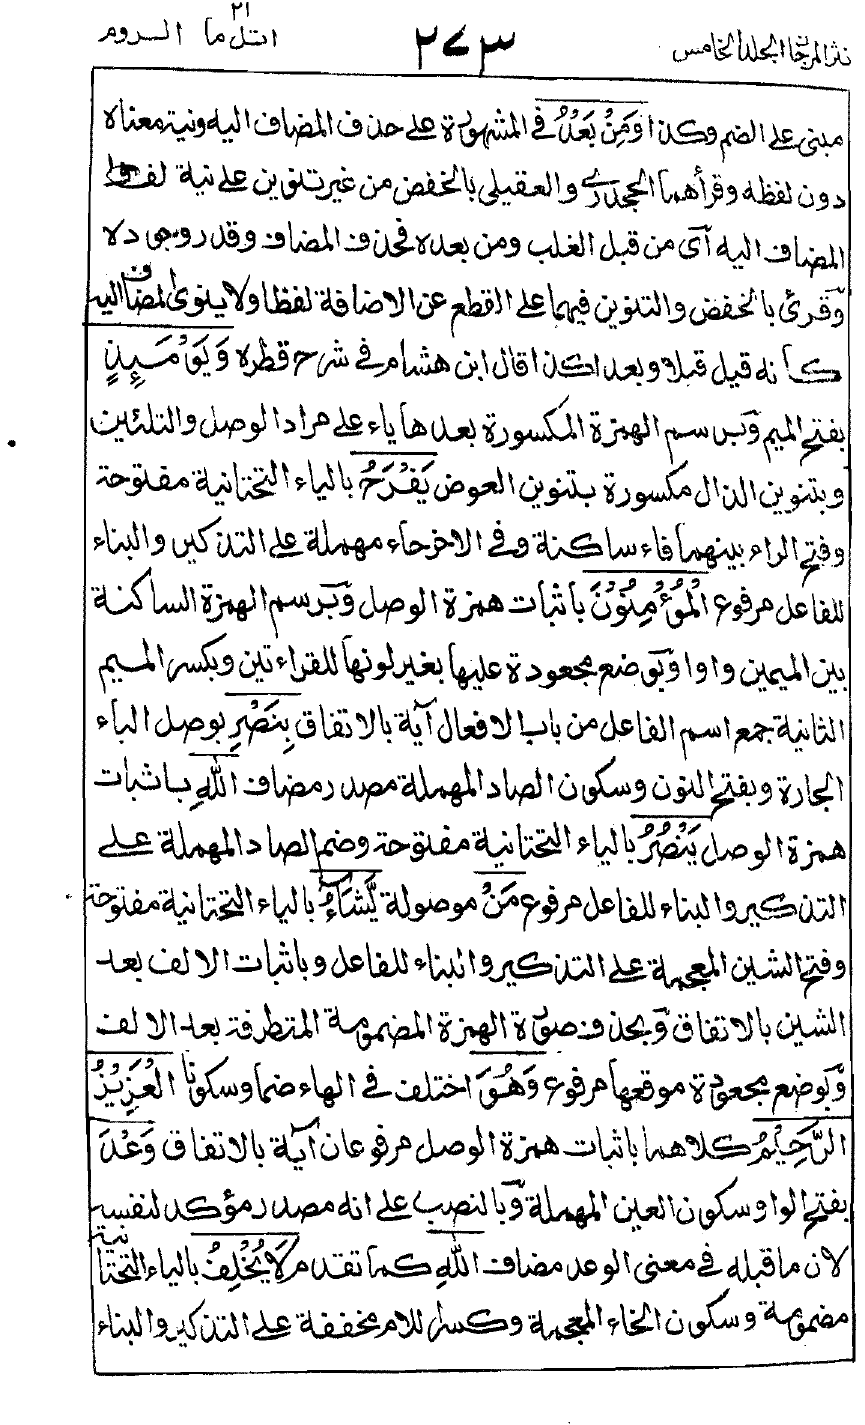 نثر المرجان المجلد الخامس
٢٧٣
اتل ما ٢١ الروم
مبنى على الضم وكذا وَمِنْ بَعْدُ في المشهورة على حذف المضاف اليه ونية معناه
دون لفظه وقرأهما الجحدرى والعقيلى بالخفض من غير تنوين على نية لفظ
المضاف اليه آى من قبل الغلب ومن بعده فحذف المضاف وقد روجى دلا
وَقرئ بالخفض والتنوين فيهما على القطع عن الاضافة لفظا ولا ينوى المضاف اليه
كأنه قيل قبلا وبعدا كذا قال ابن هشام في شرح قطره وَيَوْمَئِذٍ
بفتح الميم وَبرسم الهمزة المكسورة بعدها ياء على مراد الوصل والتلئين
وبتنوين الذال مكسورة بتنوين العوض يَفْرَحُ بالياء التحتانية مفتوحة
وفتح الراء بينهما فاء ساكنة وفي الاخر حاء مهملة على التذكير والبناء
للفاعل مرفوع الْمُؤْمِنُوْنَ باثبات همزة الوصل وَبرسم الهمزة الساكنة
بين الميمين واوا وَبوضع مجعودة عليها بغير لونها للقراءتين وبكسر الميم
الثانية جمع اسم الفاعل من باب الافعال آية بالاتفاق بِنَصْرِ بوصل الباء
الجارة وبفتح النون وسكون الصاد المهملة مصدر مضاف اللهِ باثبات
همزة الوصل يَنْصُرُ بالياء التحتانية مفتوحة وضم الصاد المهملة على
التذكير والبناء للفاعل مرفوع مَنْ موصولة يَّشَاءُ بالياء التحتانية مفتوحة
وفتح الشين المعجمة على التذكير والبناء للفاعل وباثبات الالف بعد
الشين بالاتفاق وَبحذف صورة الهمزة المضمومة المتطرفة بعد الالف
وَبوضع مجعودة موقعها مرفوع وَهُوَ اختلف في الهاء ضما وسكونا الْعَزِيْزُ
الرَّحِيْمُ كلاهما باثبات همزة الوصل مرفوعان آية بالاتفاق وَعْدَ
بفتح الواو وسكون العين المهملة وَبالنصب على انه مصدر مؤكد لنفسه
لان ما قبله في معنى الوعد مضاف اللهِ كما تقدم لَا يُخْلِفُ بالياء التحتانية
مضمومة وسكون الخاء المعجمة وكسر اللام مخففة على التذكير والبناء